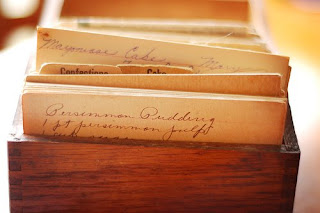 Mayonnaise Cake
Confections Cake
Persemmon Pudding
1 pt persemmon pulp